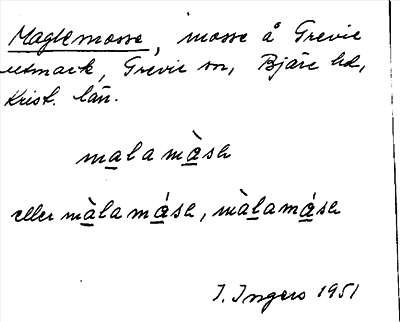 Maglemosse, mosse å Grevie
utmark, Grevie sn, Bjäre hd,
Krist. län.
malamàsa
eller màlamása, màlamása
I. Ingers 1951